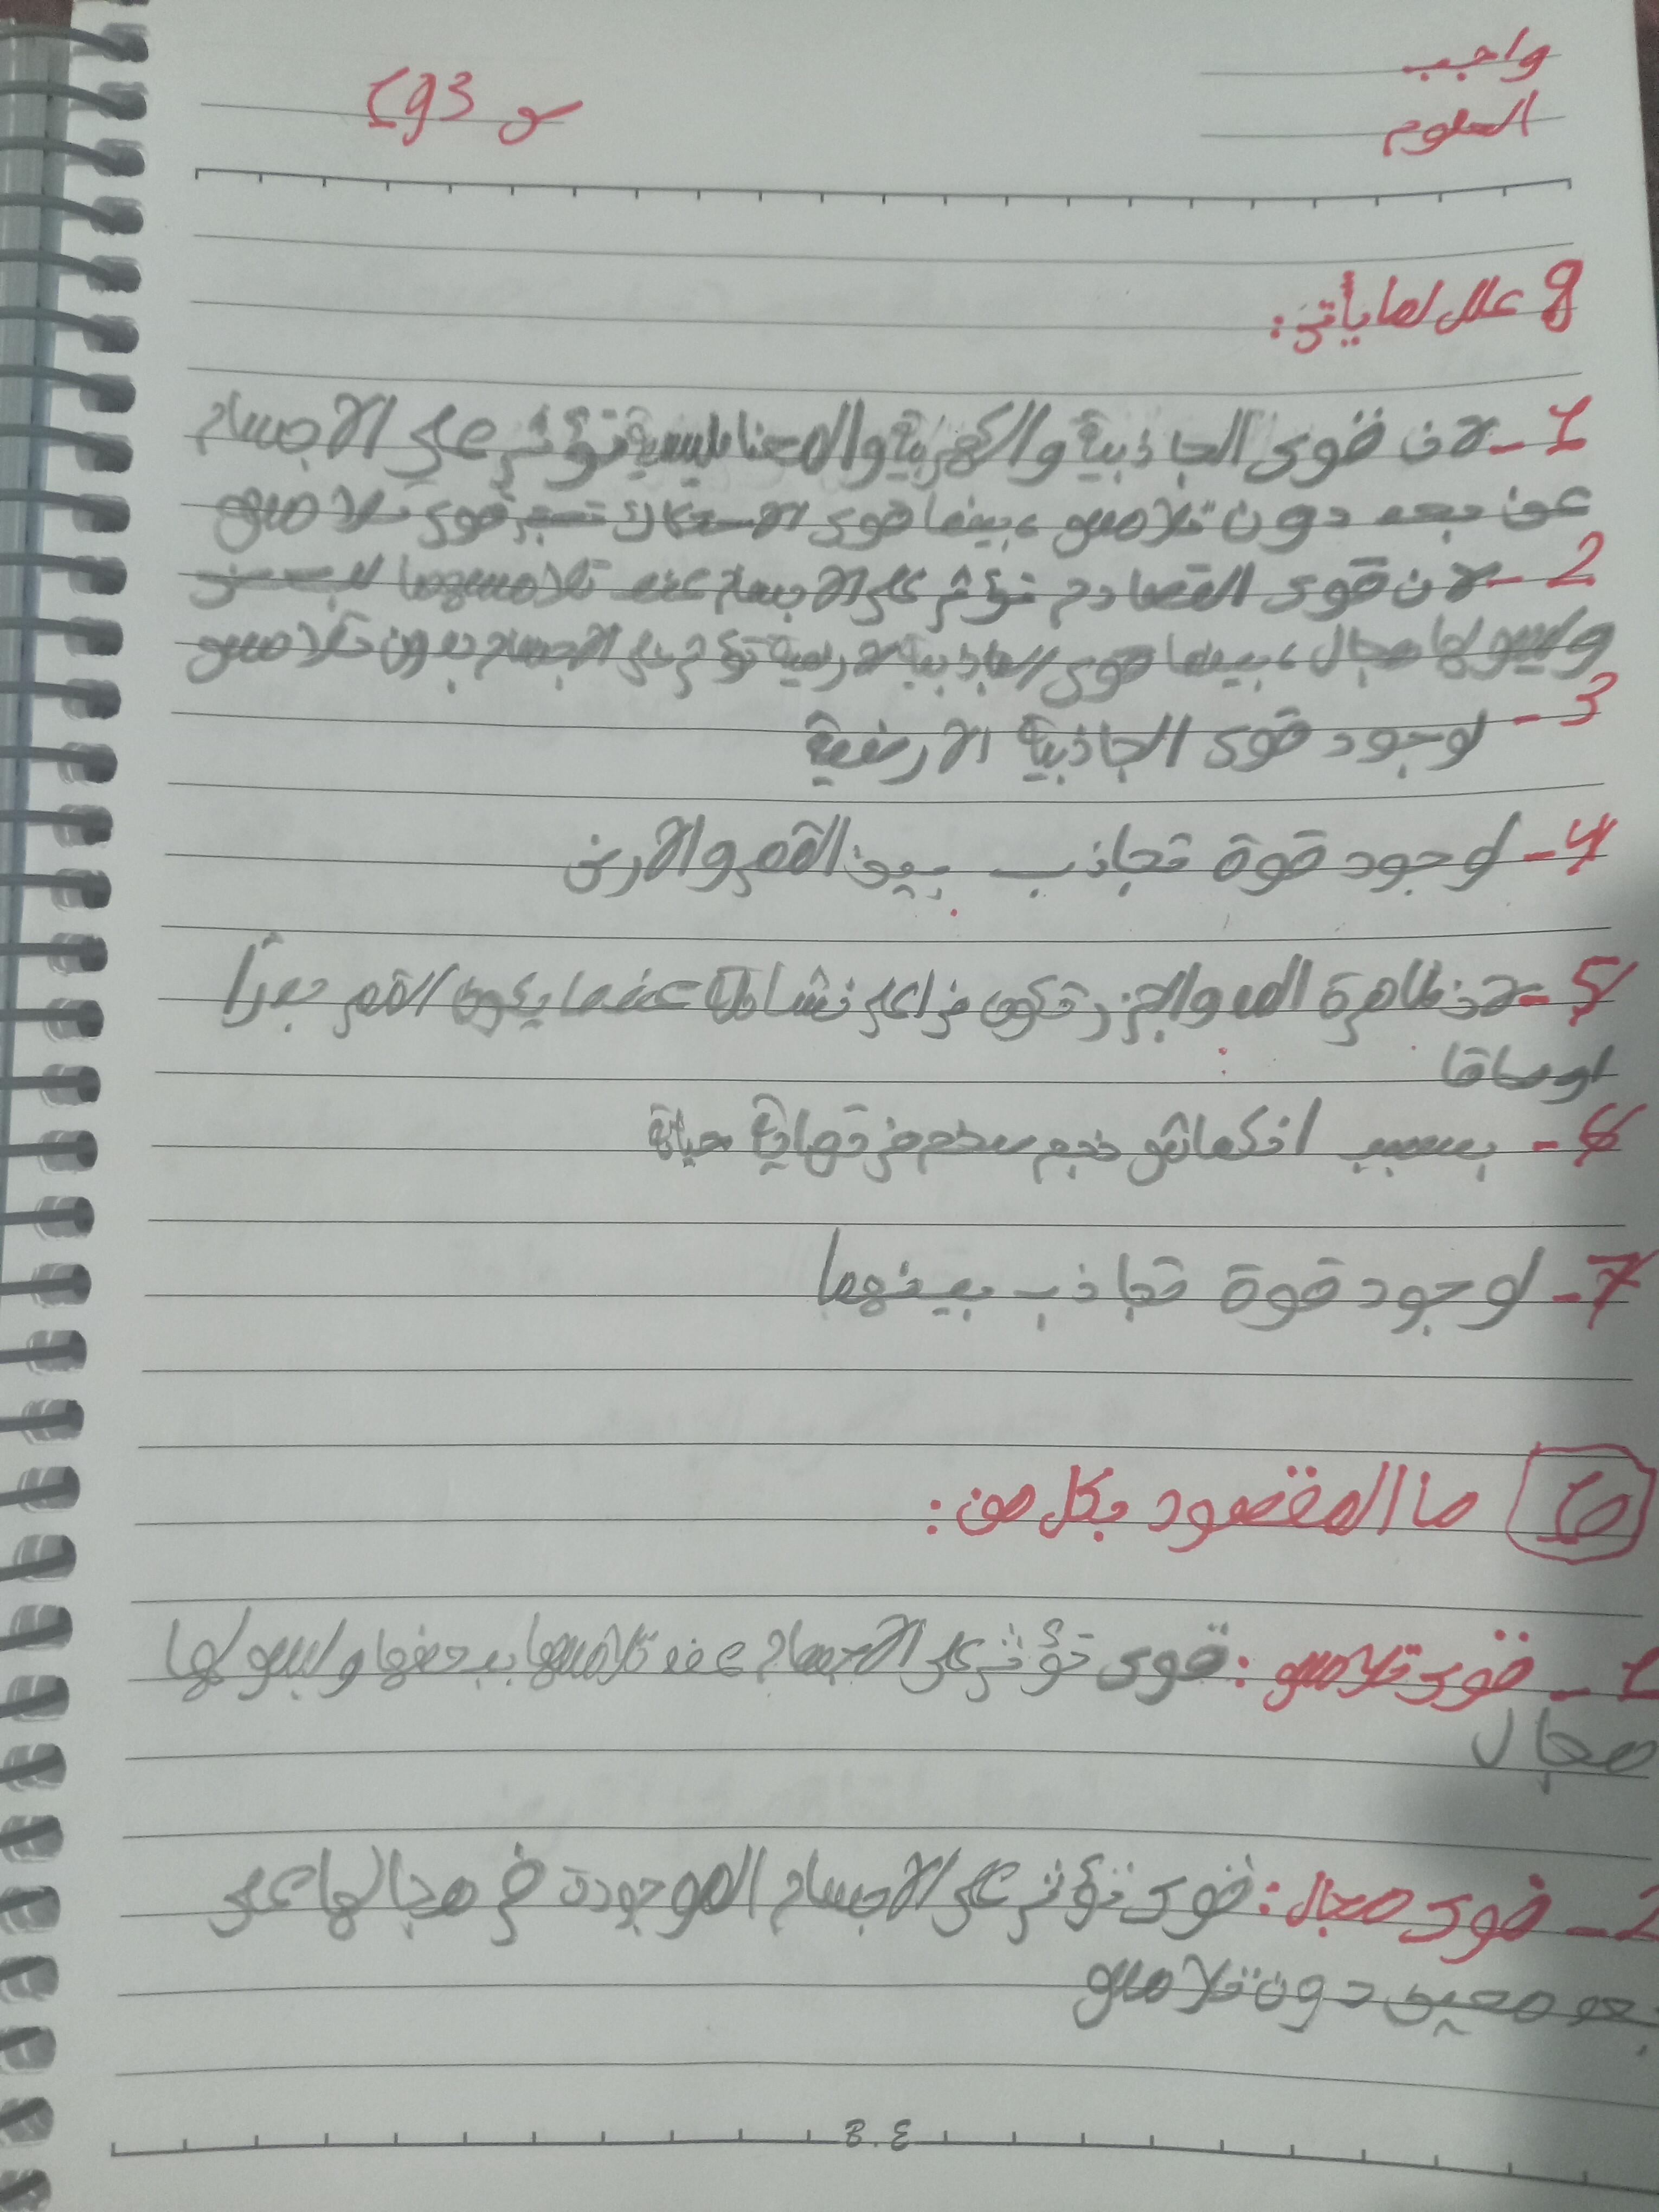 واجب
العلوم
ص 193
9 علل لما يأتي:
1- لان قوى الجاذبية والكهربية والمغناطيسية تؤثر على الاجسام
عن بعد دون تلامس، بينما قوى الاحتكاك تعتبر قوى تلامس
2- لان قوى التصادم تؤثر على الاجسام عند تلامسهما لبعض
وليس لها مجال، بينما قوى الجاذبية الارضية تؤثر على الاجسام بدون تلامس
3- لوجود قوى الجاذبية الارضية
4- لوجود قوة تجاذب بين القمر والارض
5- لان ظاهرة المد والجزر تكون في اعلى نشاط لها عندما يكون القمر بدرًا
او محاقا
6- بسبب انكماش نجم ضخم في نهاية حياته
7- لوجود قوة تجاذب بينهما
10 ما المقصود بكل من:
1- قوى تلامس: قوى تؤثر على الاجسام عند تلامسها ببعضها وليس لها
مجال
2- قوى مجال: قوى تؤثر على الاجسام الموجودة في مجالها على
بعد معين دون تلامس
B.E